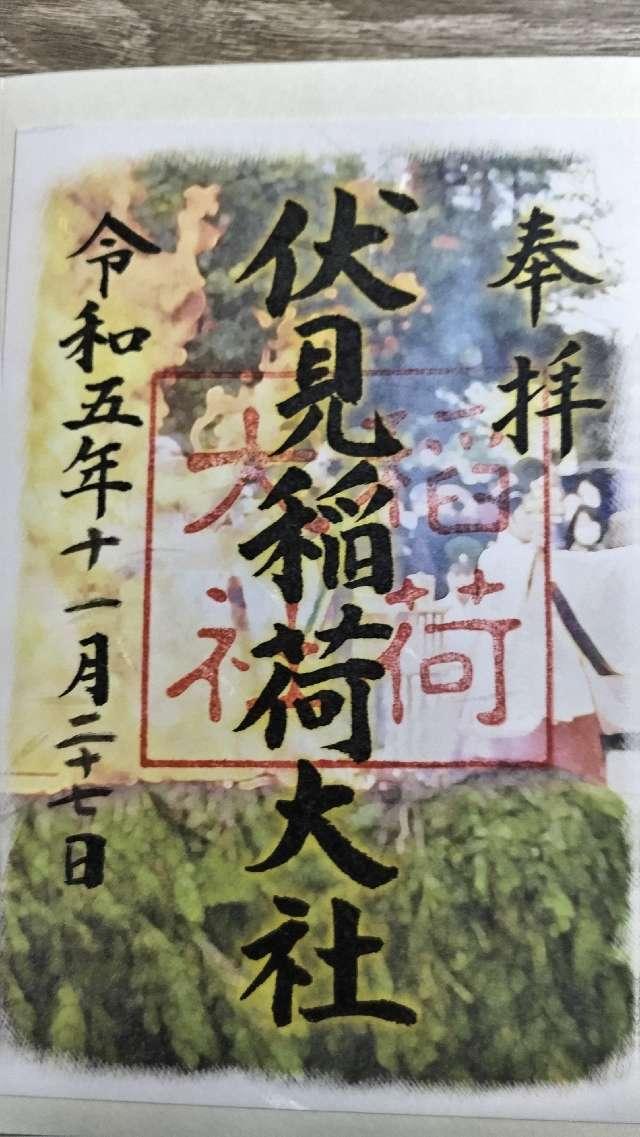 奉拝
伏見稲荷大社
稲荷
大社
令和五年十一月二十七日